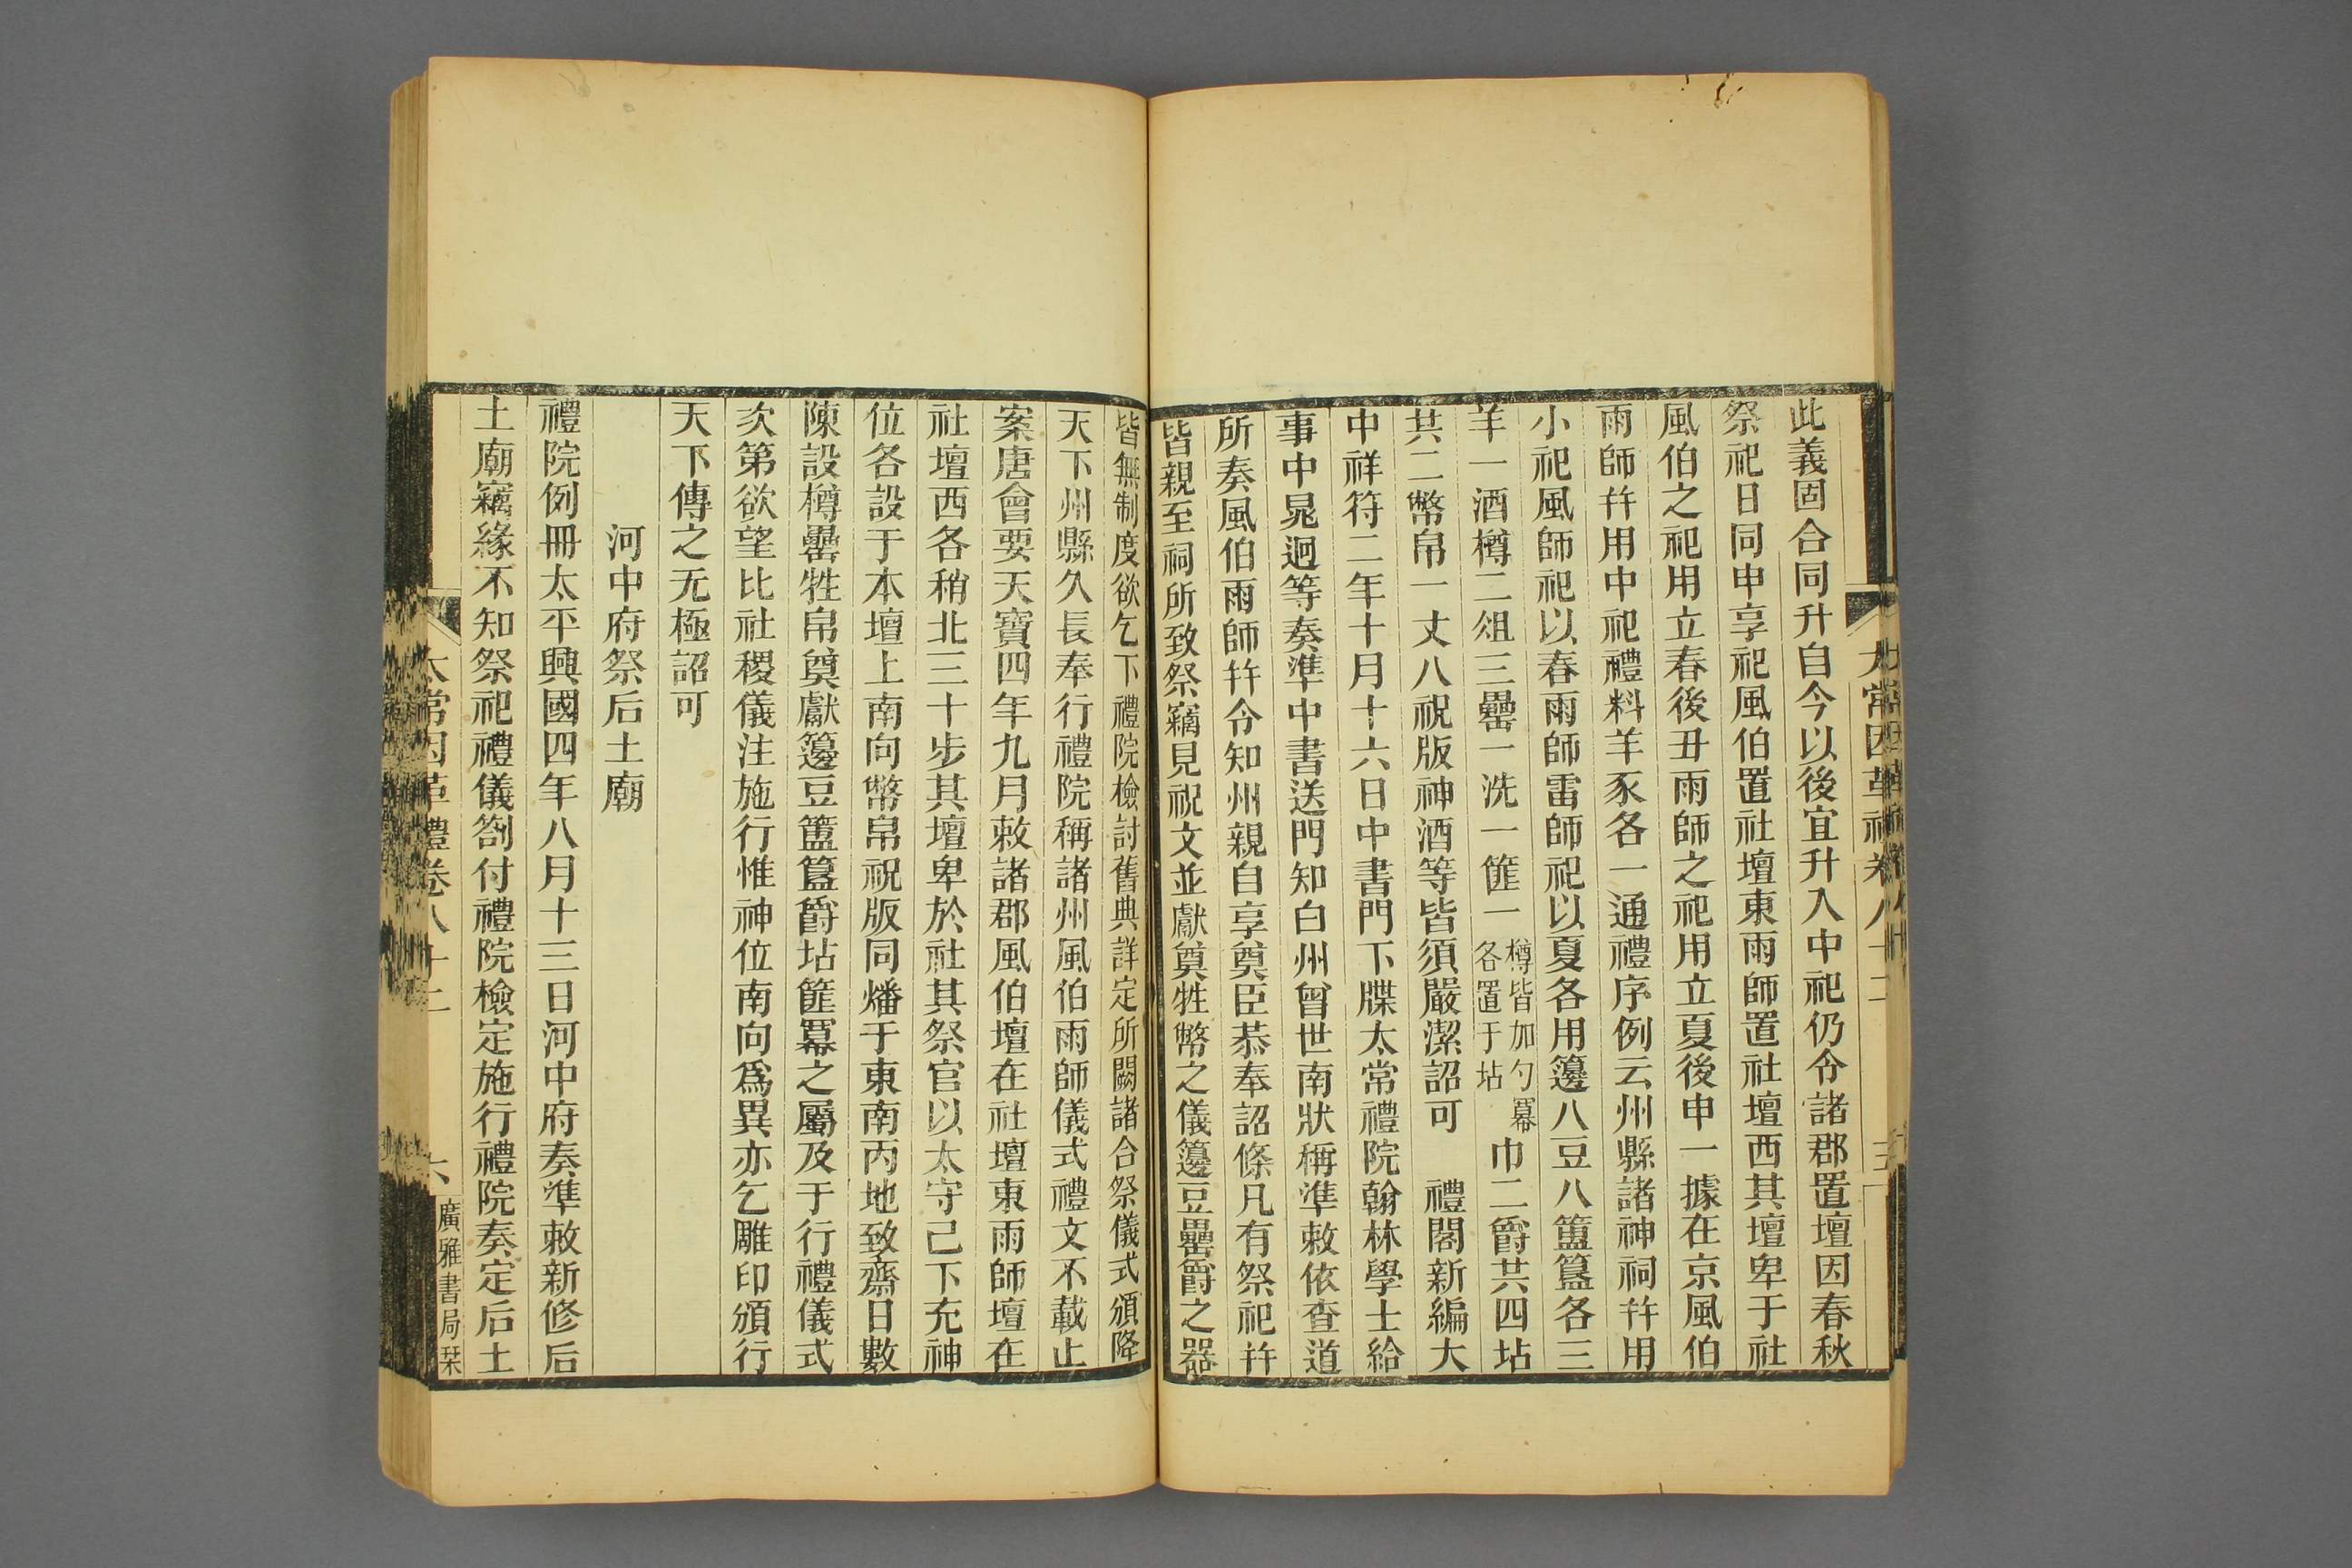 此義固合同升自今以後宜升入中祀仍令諸郡置壇因春秋
祭祀日同申享祀風伯置社壇東雨師置社壇西其壇卑于社
風伯之祀用立春後丑雨師之祀用立夏後申一據在京風伯
雨師幷用中祀禮料羊豕各一通禮序例云州縣諸神祠幷用
小祀風師祀以春雨師雷師祀以夏各用籩八豆八簠簋各三
羊一酒樽二俎三罍一洗一篚一樽皆加勺冪各置于坫巾二爵共四坫
共二幣帛一丈八祝版神酒等皆須嚴潔詔可　禮閣新編大
中祥符二年十月十六日中書門下牒太常禮院翰林學士給
事中晁迥等奏準中書送門知白州曾世南狀稱準敕依查道
所奏風伯雨師幷令知州親自享奠臣恭奉詔條凡有祭祀幷
皆親至祠所致祭竊見祝文並獻奠牲幣之儀籩豆罍爵之器
皆無制度欲乞下禮院檢討舊典詳定所闕諸合祭儀式頒降
天下州縣久長奉行禮院稱諸州風伯雨師儀式禮文不載止
案唐會要天寶四年九月敕諸郡風伯壇在社壇東雨師壇在
社壇西各稍北三十步其壇卑於社其祭官以太守己下充神
位各設于本壇上南向幣帛祝版同燔于東南丙地致齋日數
陳設樽罍牲帛奠獻籩豆簠簋爵坫篚冪之屬及于行禮儀式
次第欲望比社稷儀注施行惟神位南向爲異亦乞雕印頒行
天下傳之无極詔可
河中府祭后土廟
禮院例冊太平興國四年八月十三日河中府奏準敕新修后
土廟竊緣不知祭祀禮儀劄付禮院檢定施行禮院奏定后土
太常因革禮卷八十二
六
廣雅書局栞